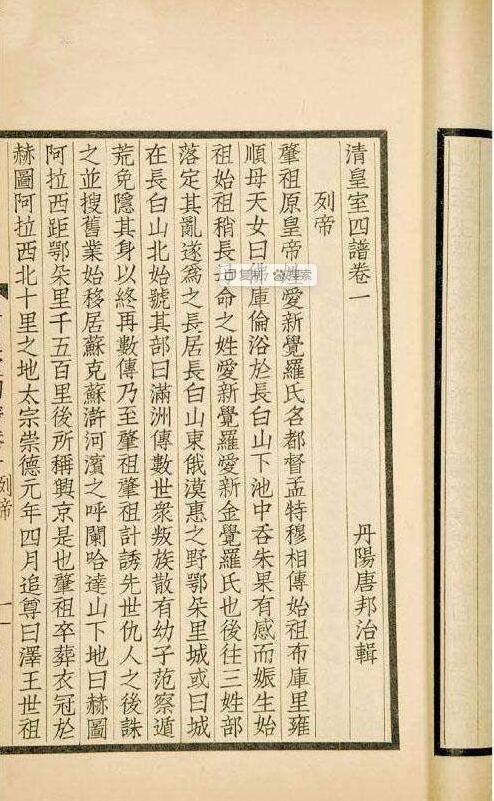 清皇室四譜卷一
丹陽唐邦治輯
列帝
肇祖原皇帝姓愛新覺羅氏名都督孟特穆相傳始祖布庫里雍
順母天女曰佛庫倫浴於長白山下池中吞朱果有感而娠生始
祖始祖稍長母命之姓愛新覺羅愛新金覺羅氏也後往三姓部
落定其亂遂爲之長居長白山東俄漠惠之野鄂朵里城或曰城
在長白山北始號其部曰滿洲傳數世衆叛族散有幼子范察遁
荒免隱其身以終再數傳乃至肇祖肇祖計誘先世仇人之後誅
之並搜舊業始移居蘇克蘇滸河濱之呼闌哈達山下地曰赫圖
阿拉西距鄂朵里千五百里後所稱興京是也肇祖卒葬衣冠於
赫圖阿拉西北十里之地太宗崇德元年四月追尊曰澤王世祖
列帝
一